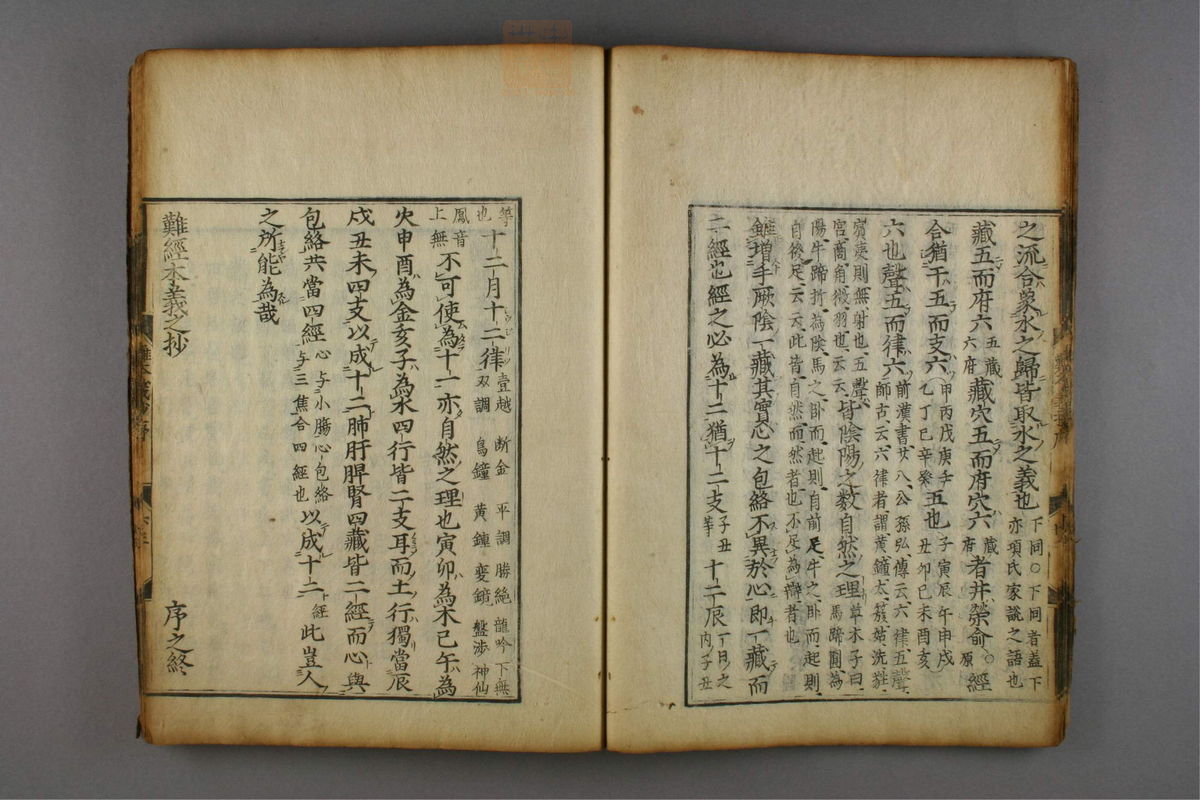 之流合衆水之歸皆取水之義也下同○下同者蓋下
亦項氏家說之語也
藏五而府六五藏六府藏穴五而府穴六藏者井榮俞○府原經
合猶干五而支六甲丙戊庚壬乙丁己辛癸五也子寅辰午申戌丑卯巳未酉亥
六也聲五而律六前漢書廿八公孫弘傳云六律五聲師古云六律者謂黃鐘太簇姑洗蕤
賓夷則無射也五聲宮商角徵羽也云云皆陰陽之數自然之理草木子曰馬蹄圓為
陽牛蹄折為陰馬之卧而起則自前足牛之卧而起則
自後足云云此皆自然而然者也不足為辯者也
雖增手厥陰一藏其實心之包絡不異於心即一藏而
二經也經之必為十二猶十二支子丑等十二辰一日之内子丑
等也十二月十二律壹越 断金 平調 勝絶 龍吟 下無
双調 鳧鐘 黃鐘 變鏡 盤渉 神仙
鳳音
上無不可使為十一亦自然之理也寅卯為木巳午為
火申酉為金亥子為水四行皆二支耳而土行獨當辰
戌丑未四支以成十二肺肝脾腎四藏皆二經而心與
包絡共當四經心与小腸心包絡与三焦合四經也以成十二經此豈人
之所能為哉
難經本義之抄
序之終